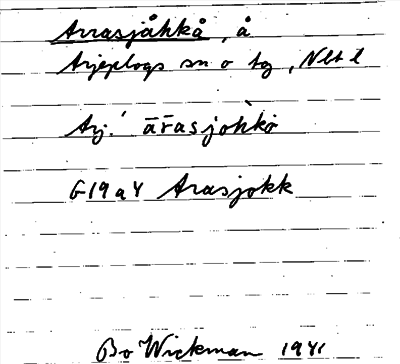 Arrasjåhkå, å
Arjeplogs sn o tg, Nlt l
Arj. ārasjohkò
G19a4 Arasjokk
Bo Wickman 1941